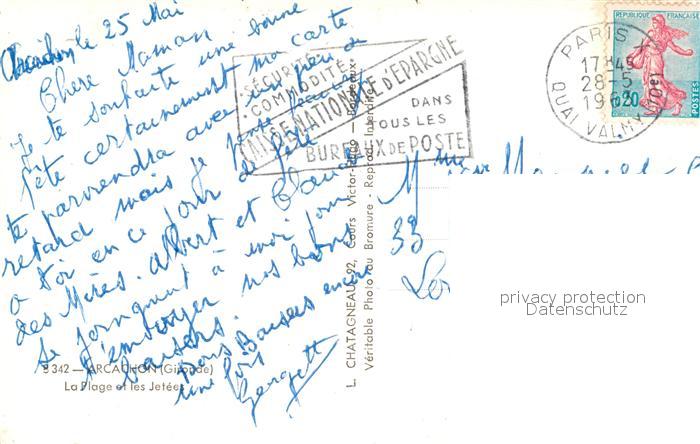 Arcachon le 25 Mai
Chère Maman
Je te souhaite une bonne
fête certainement ma carte
te parviendra avec un peu de
retard mais je pense
à toi en ce jour de fête
des Mères. Albert et
se joignent à moi pour
t'envoyer nos bons
baisers.
Bons Baisers encore
une fois
Georgette
342 — ARCACHON (Gironde)
La Plage et les Jetées
L. CHATAGNEAU, 92, Cours Victor- - Bordeaux
Véritable Photo au Bromure - Reprod. Interdite
SÉCURITÉ
COMMODITÉ
CAISSE NATIONALE D'ÉPARGNE
DANS
TOUS LES
BUREAUX DE POSTE
PARIS X
17H45
28-5
196
QUAI VALMY (10e)
REPUBLIQUE FRANÇAISE
0,20
POSTES
33
privacy protection
Datenschutz